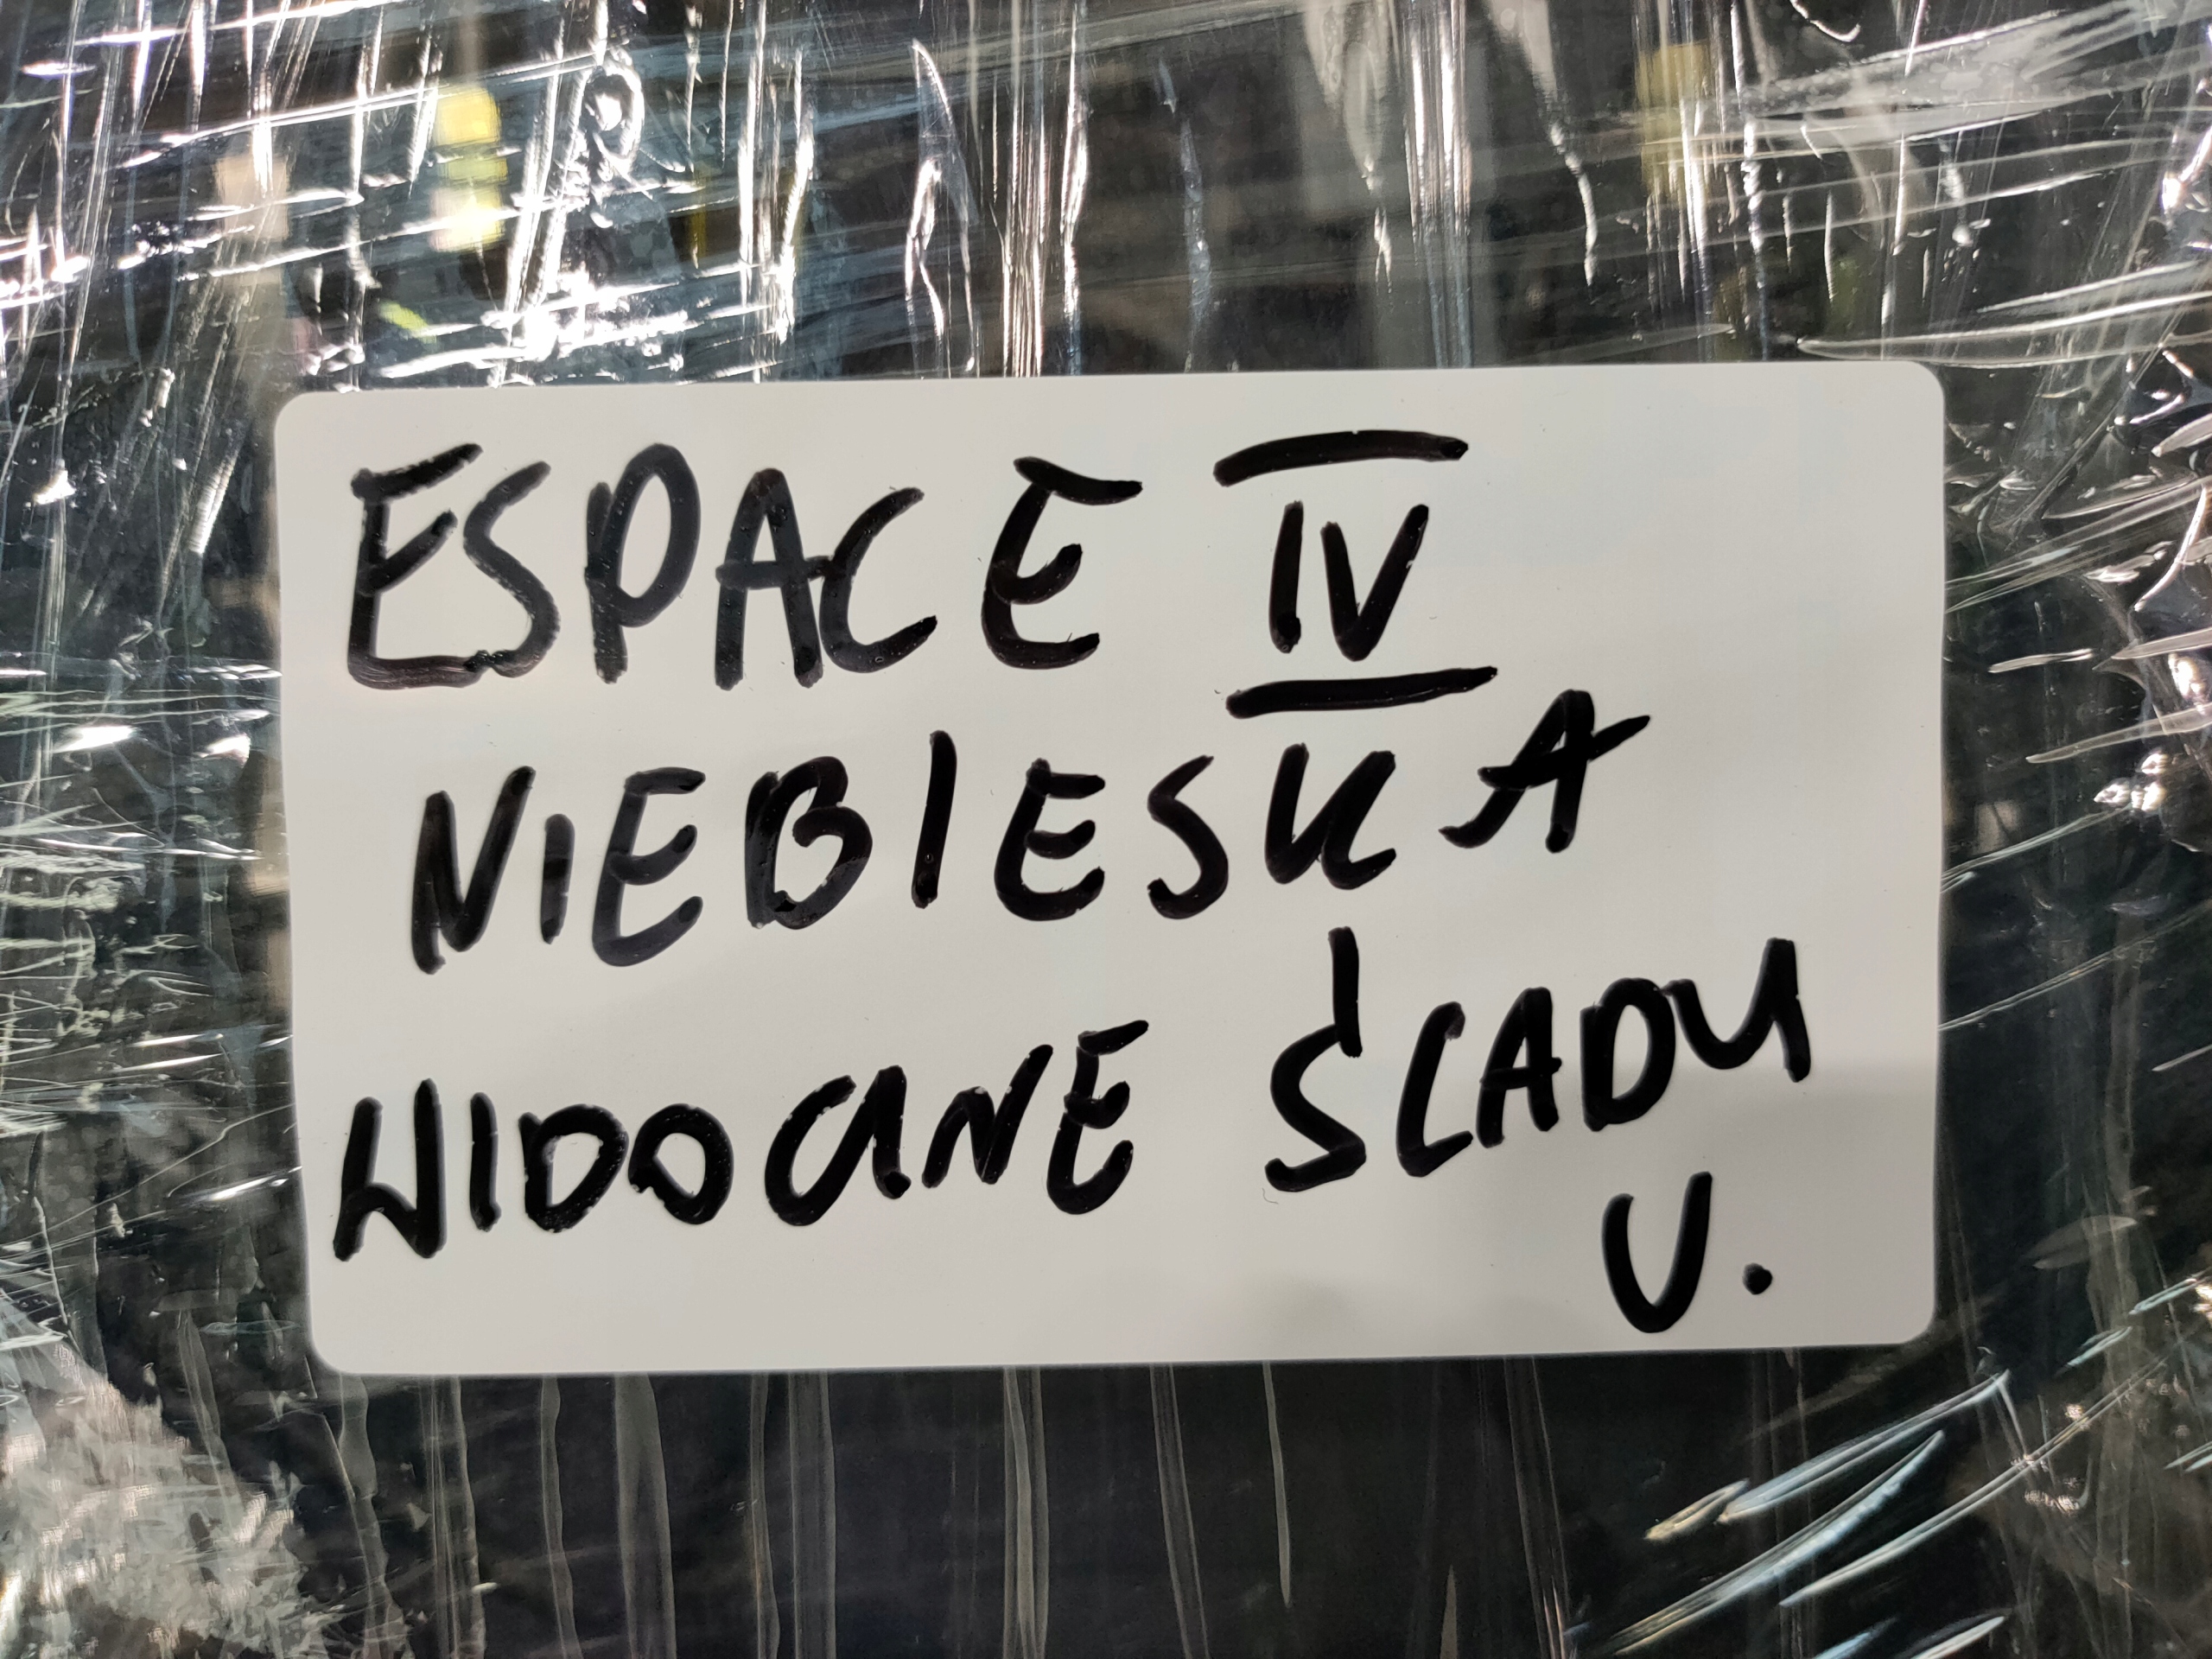 ESPACE IV
NIEBIESKA
WIDOCZNE ŚLADY
U.